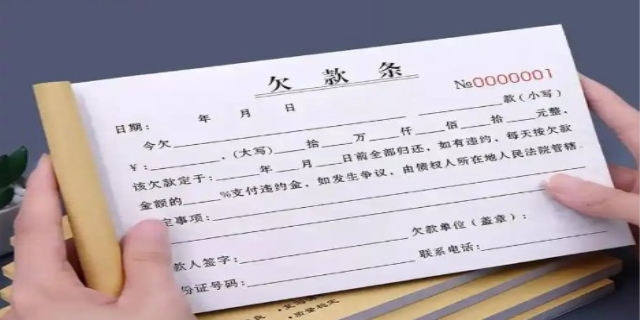 欠款条
№0000001
日期： 年 月 日
今欠 款(小写)
¥： ,(大写) 拾 万 仟 佰 拾 元整,
该欠款定于： 年 月 日前全部归还，如有违约，每天按欠款
金额的 %支付违约金，如发生争议，由债权人所在地人民法院管辖.
定事项：
款人签字： 欠款单位(盖章)：
份证号码： 联系电话：